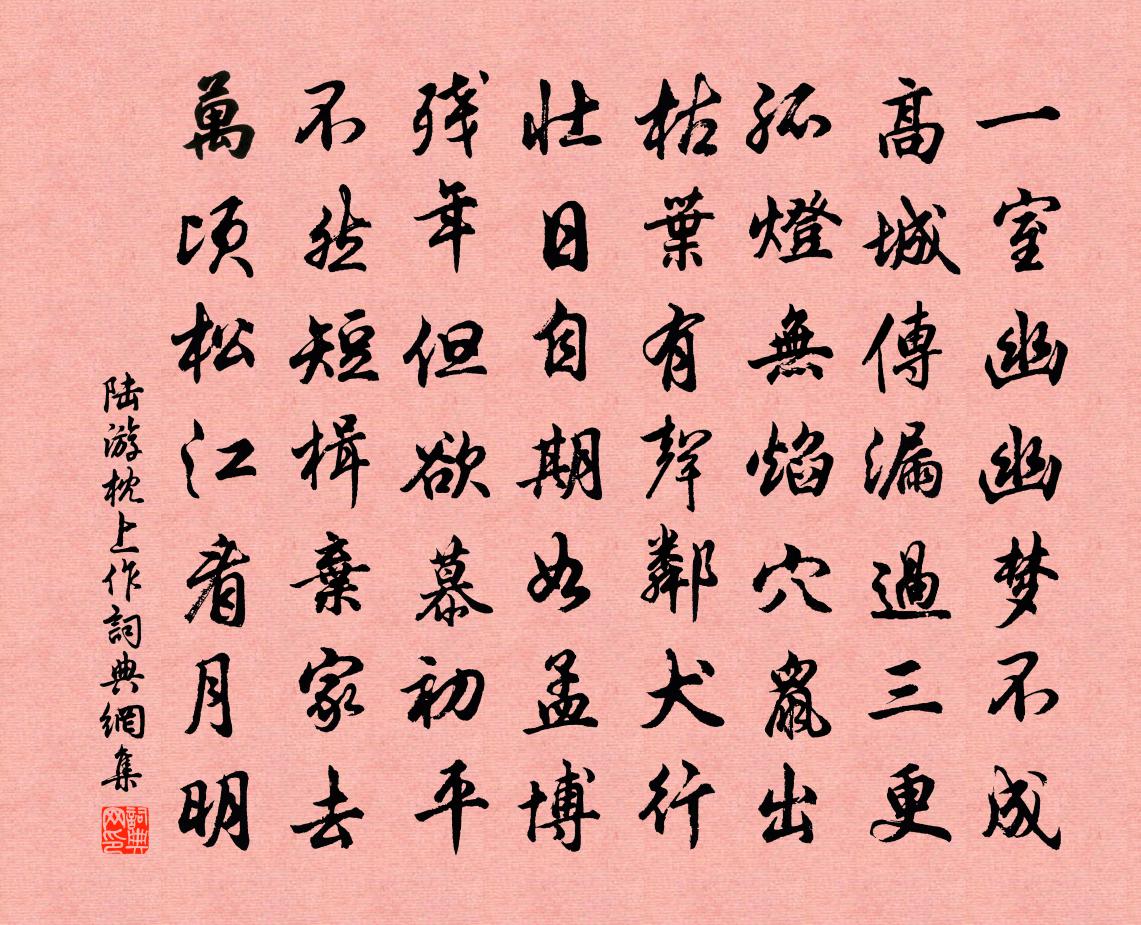 一室幽幽梦不成
高城傳漏過三更
孤燈無焰穴鼠出
枯葉有聲鄰犬行
壮日自期如孟博
残年但欲慕初平
不然短楫棄家去
萬頃松江看月明
陆游枕上作詞典網集
詞典网印